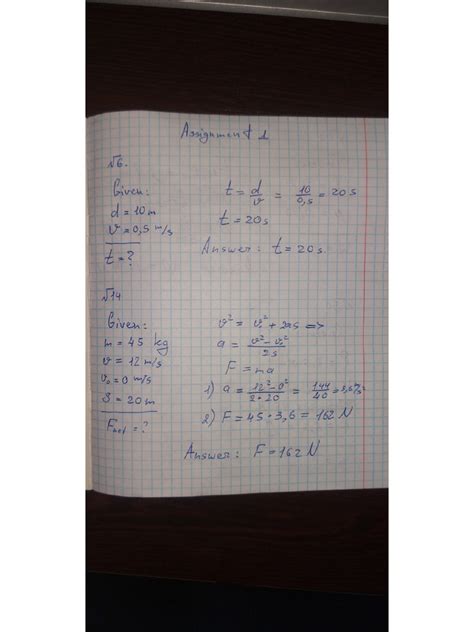 Assignment 1
№6.
Given:
d = 10 m
v = 0,5 m/s
t = ?
t = d/v = 10/0,5 = 20 s
t = 20 s
Answer: t = 20 s.
№14
Given:
m = 45 kg
v = 12 m/s
v₀ = 0 m/s
S = 20 m
Fnet = ?
v² = v₀² + 2as =>
a = (v² - v₀²)/2s
F = ma
1) a = (12² - 0²)/(2 * 20) = 144/40 = 3,6 m/s²
2) F = 45 * 3,6 = 162 N
Answer: F = 162 N